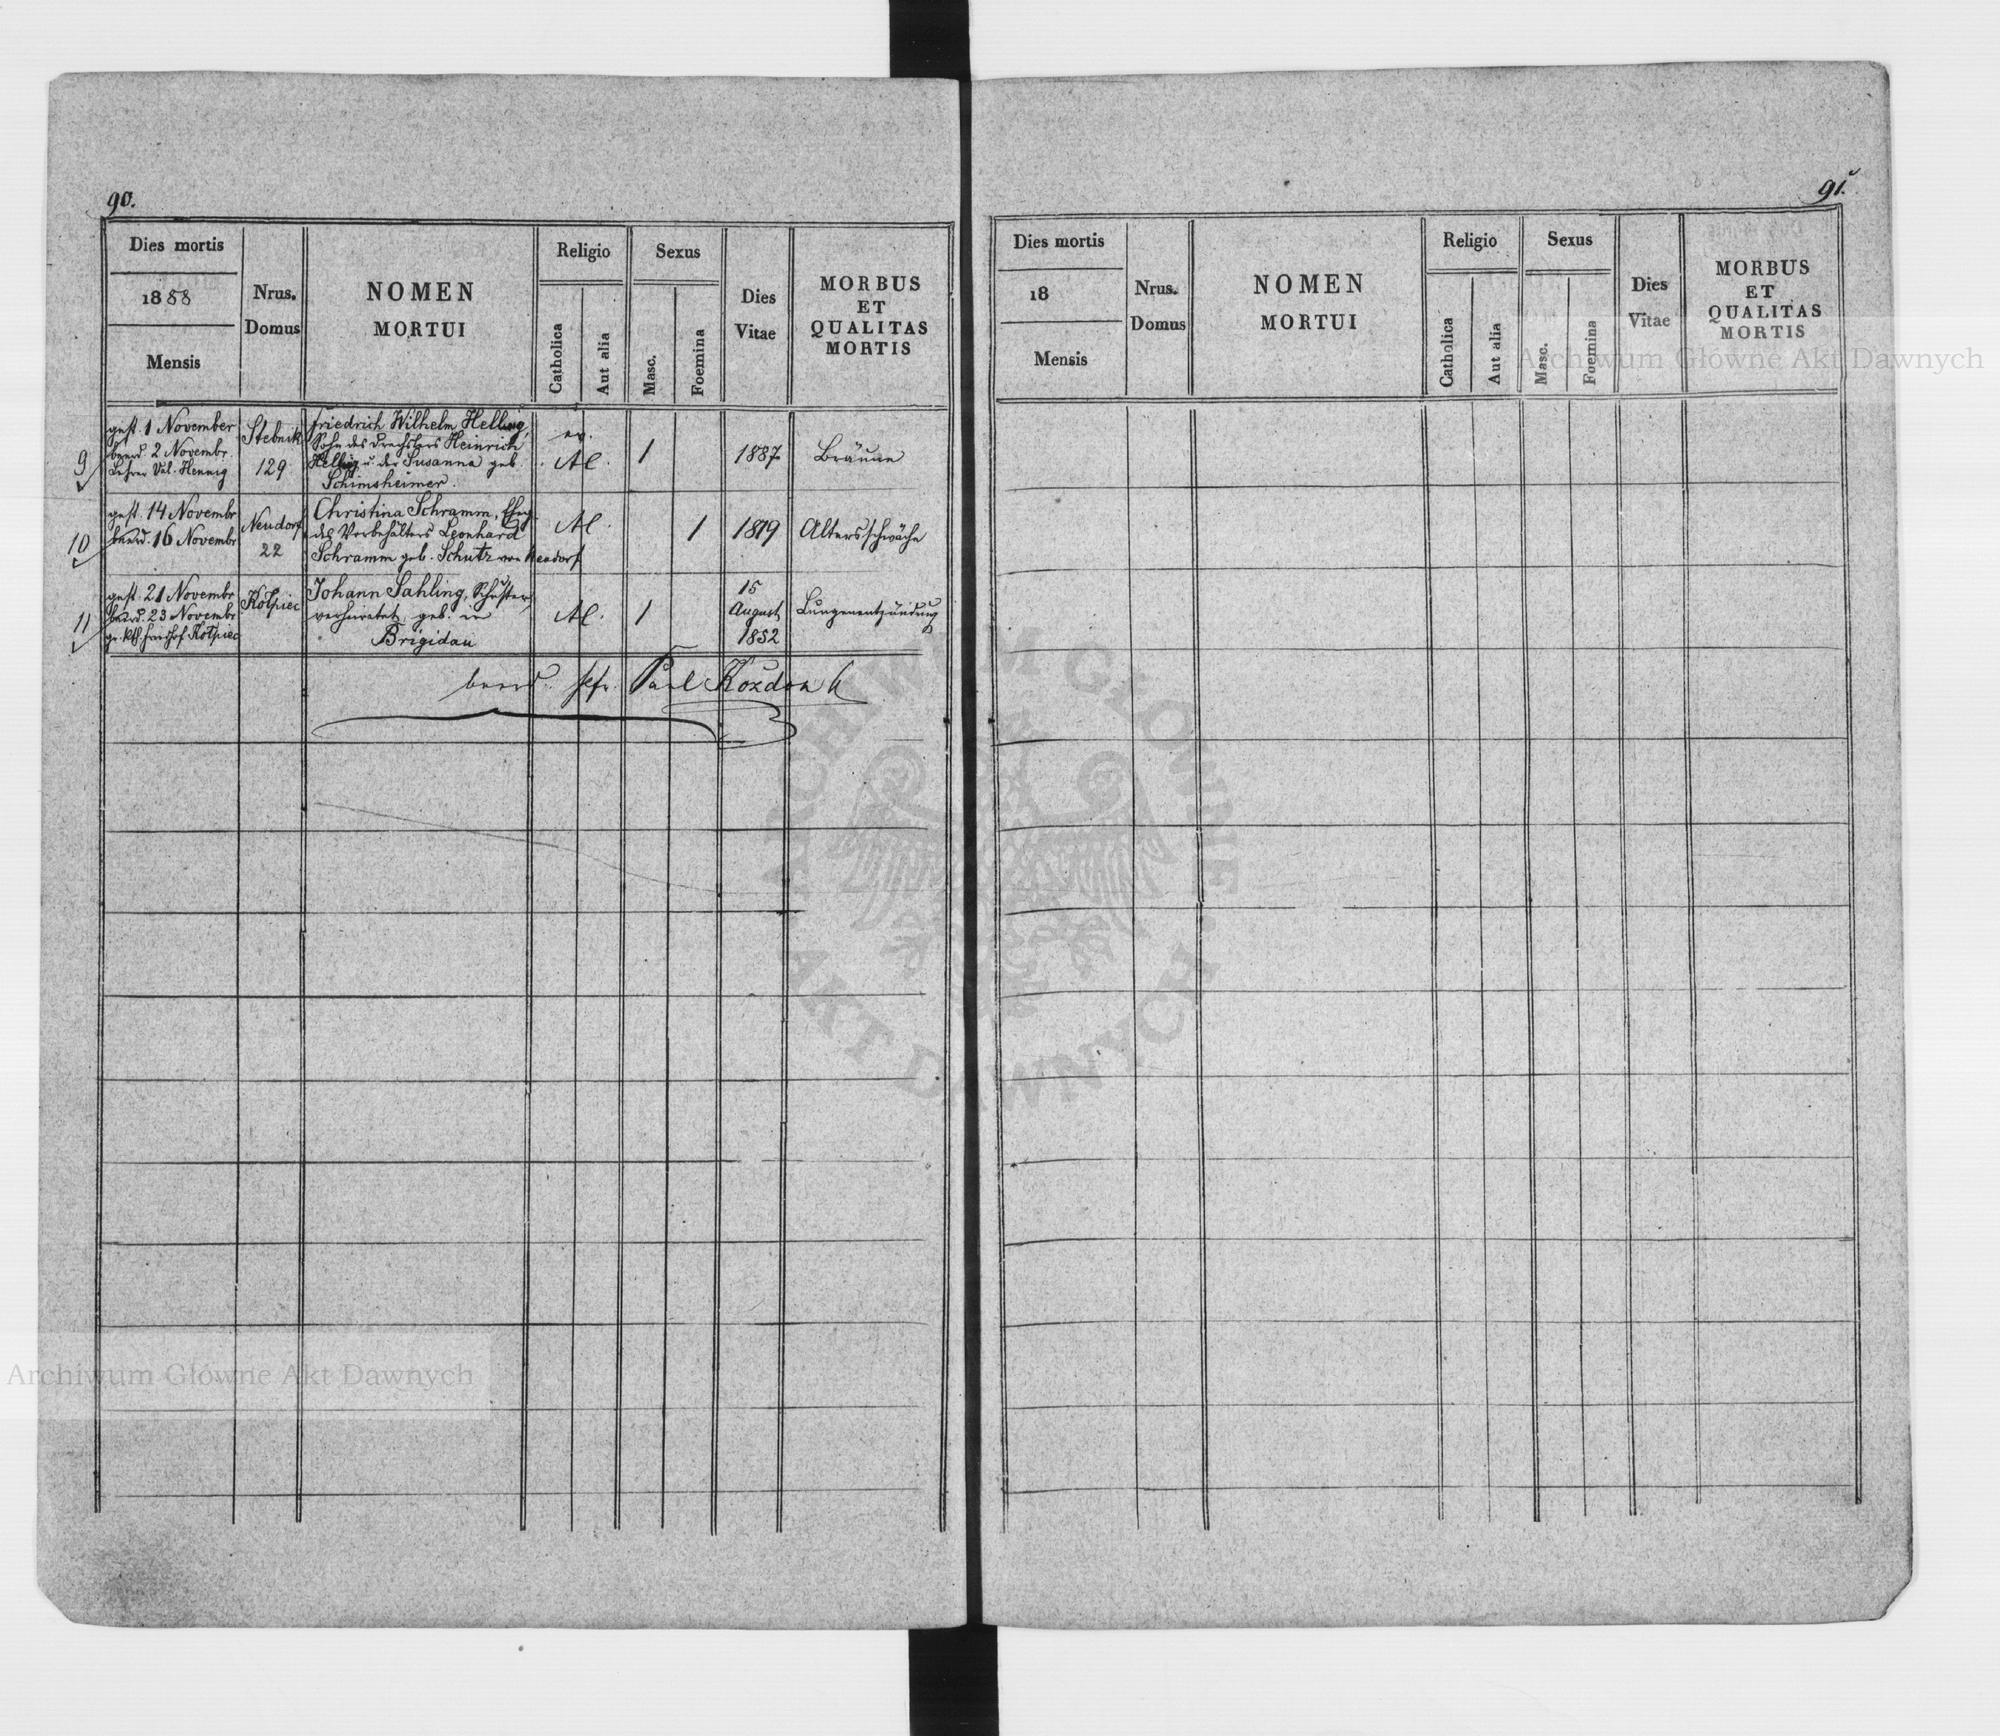 90.
Dies mortis
1888
Mensis
Nrus.
Domus
NOMEN
MORTUI
Religio
Catholica
Aut alia
Sexus
Masc.
Foemina
Dies
Vitae
MORBUS
ET
QUALITAS
MORTIS
9
gest. 1 November
beerd. 2 Novembr.
Lehrer Val. Hennig
Stebnik
129
Friedrich Wilhelm Helling,
Sohn des Drechslers Heinrich
Helling u. der Susanna geb.
Schimsheimer.
ev.
AC.
1
1887
Bräune
10
gest. 14 Novembr
beerd. 16 Novembr
Neudorf
22
Christina Schramm,
des Vorbehälters Leonhard
Schramm geb. Schutz von Neudorf
AC.
1
1819
Altersschwäche
11
gest. 21 Novembr
beerd. 23 Novembr
gr. kth. Friedhof Kołpiec
Kołpiec
Johann Sahling, Schuster,
verheiratet, geb. in
Brigidau
AC.
1
15
August
1852
Lungenentzündung
beerd. Pfr. Paul Kozdon
91.
Dies mortis
18
Mensis
Nrus.
Domus
NOMEN
MORTUI
Religio
Catholica
Aut alia
Sexus
Masc.
Foemina
Dies
Vitae
MORBUS
ET
QUALITAS
MORTIS
Archiwum Główne Akt Dawnych
ARCHIWUM GŁÓWNE
AKT DAWNYCH
Archiwum Główne Akt Dawnych